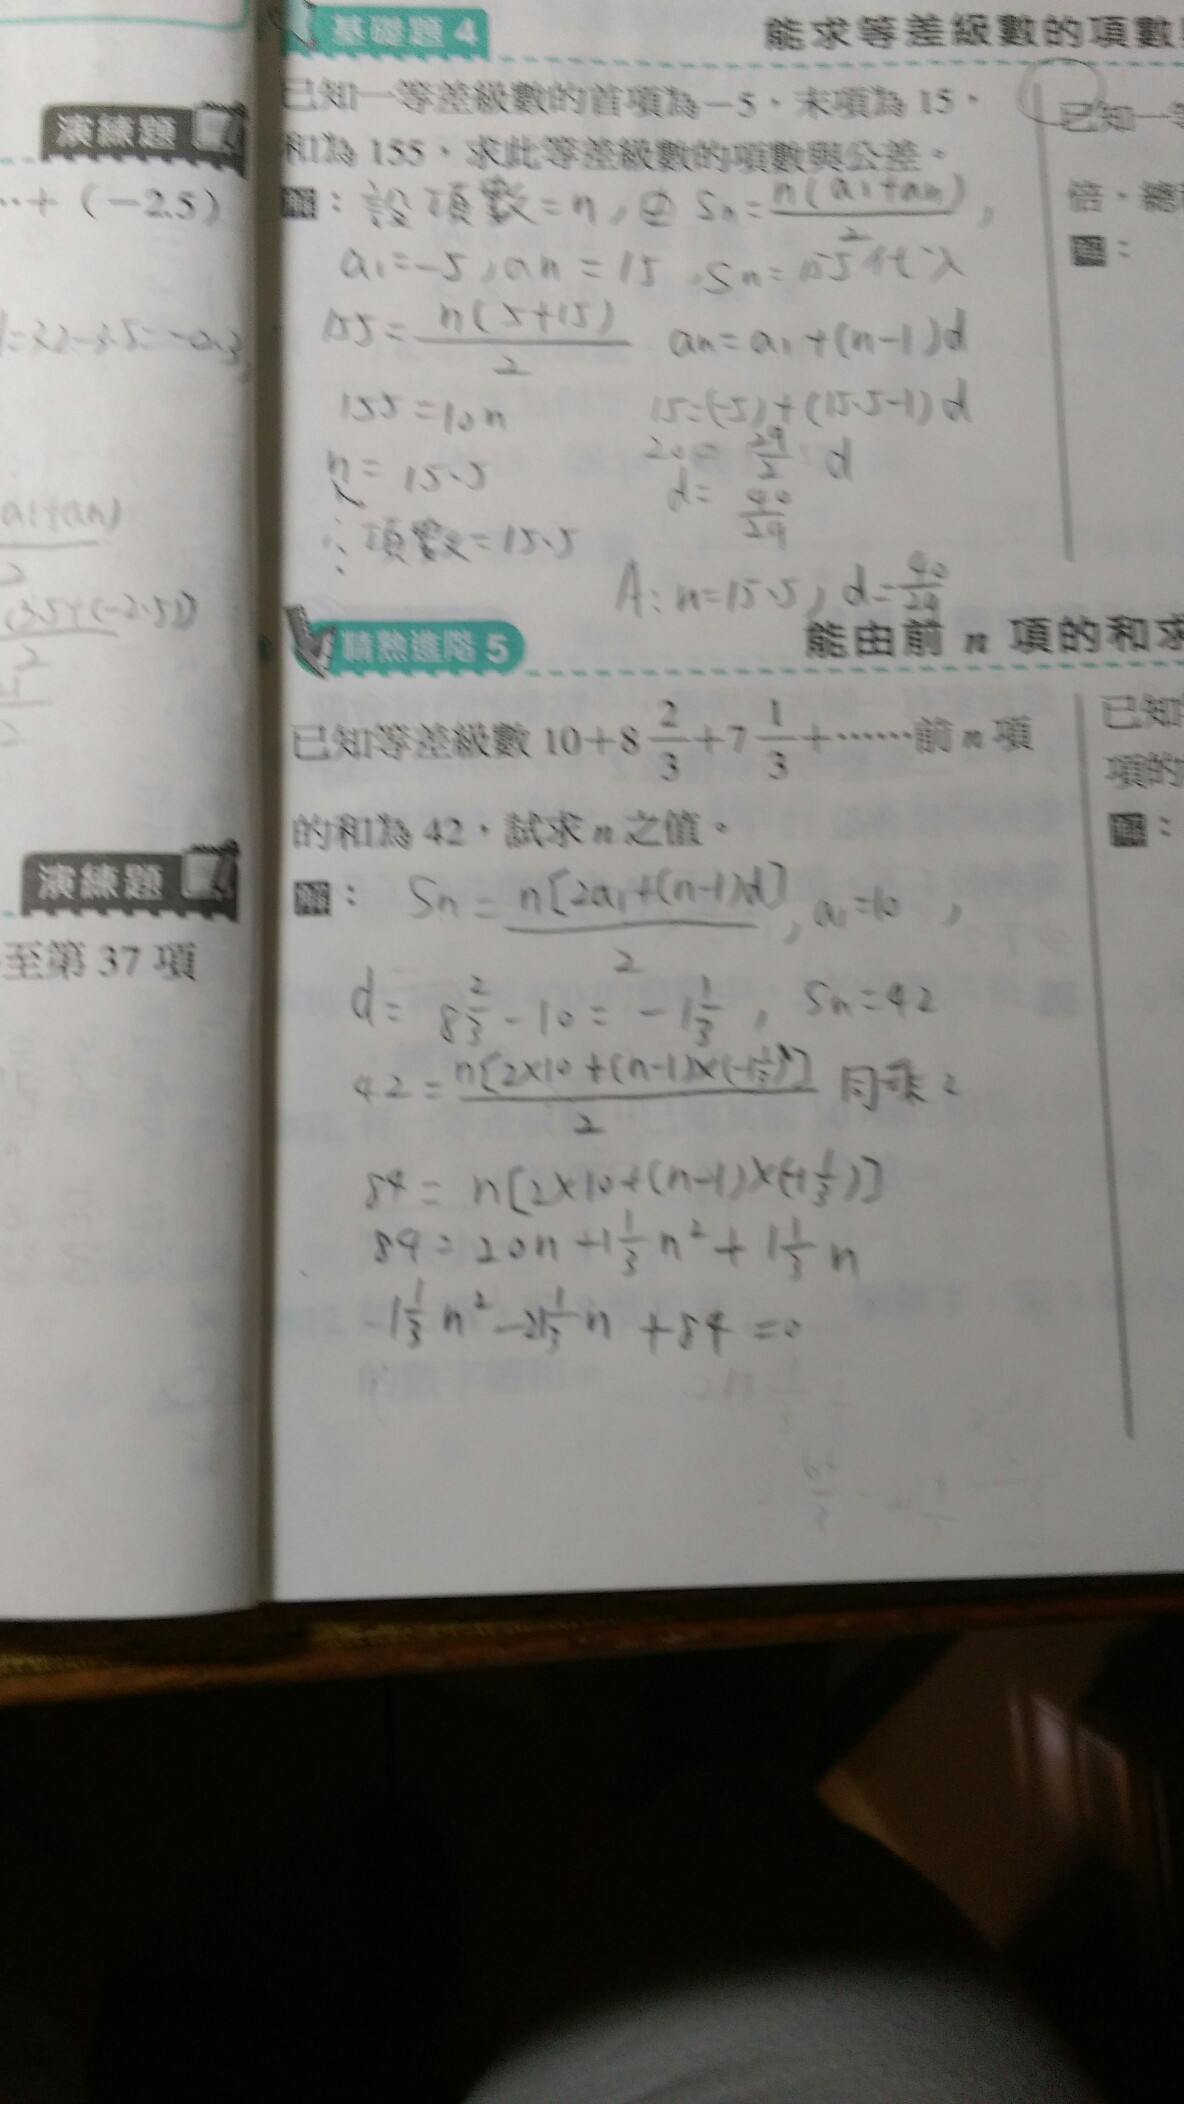 演練題
‥+(-2.5)
演練題
至第 37 項
基礎題 4
能求等差級數的項數
已知一等差級數的首項為-5,末項為 15,
和為 155,求此等差級數的項數與公差。
解:設項數=n,由 Sn=n(a1+an)/2,
a1=-5,an=15,Sn=155代入
155=n(5+15)/2
155=10n
n=15.5
∴項數=15.5
an=a1+(n-1)d
15=(-5)+(15.5-1)d
20=29/2 d
d=40/29
A:n=15.5,d=40/29
精熟進階 5
能由前 n 項的和求
已知等差級數 10+8 2/3+7 1/3+……前 n 項
的和為 42,試求 n 之值。
解:Sn=n[2a1+(n-1)d]/2,a1=10,
d=8 2/3-10=-1 1/3,Sn=42
42=n[2×10+(n-1)×(-1 1/3)]/2 同乘2
84=n[2×10+(n-1)×(-1 1/3)]
84=20n+1 1/3 n²+1 1/3 n
-1 1/3 n²-21 1/3 n+84=0
已知一等
倍,總
解:
已知
項的
解: